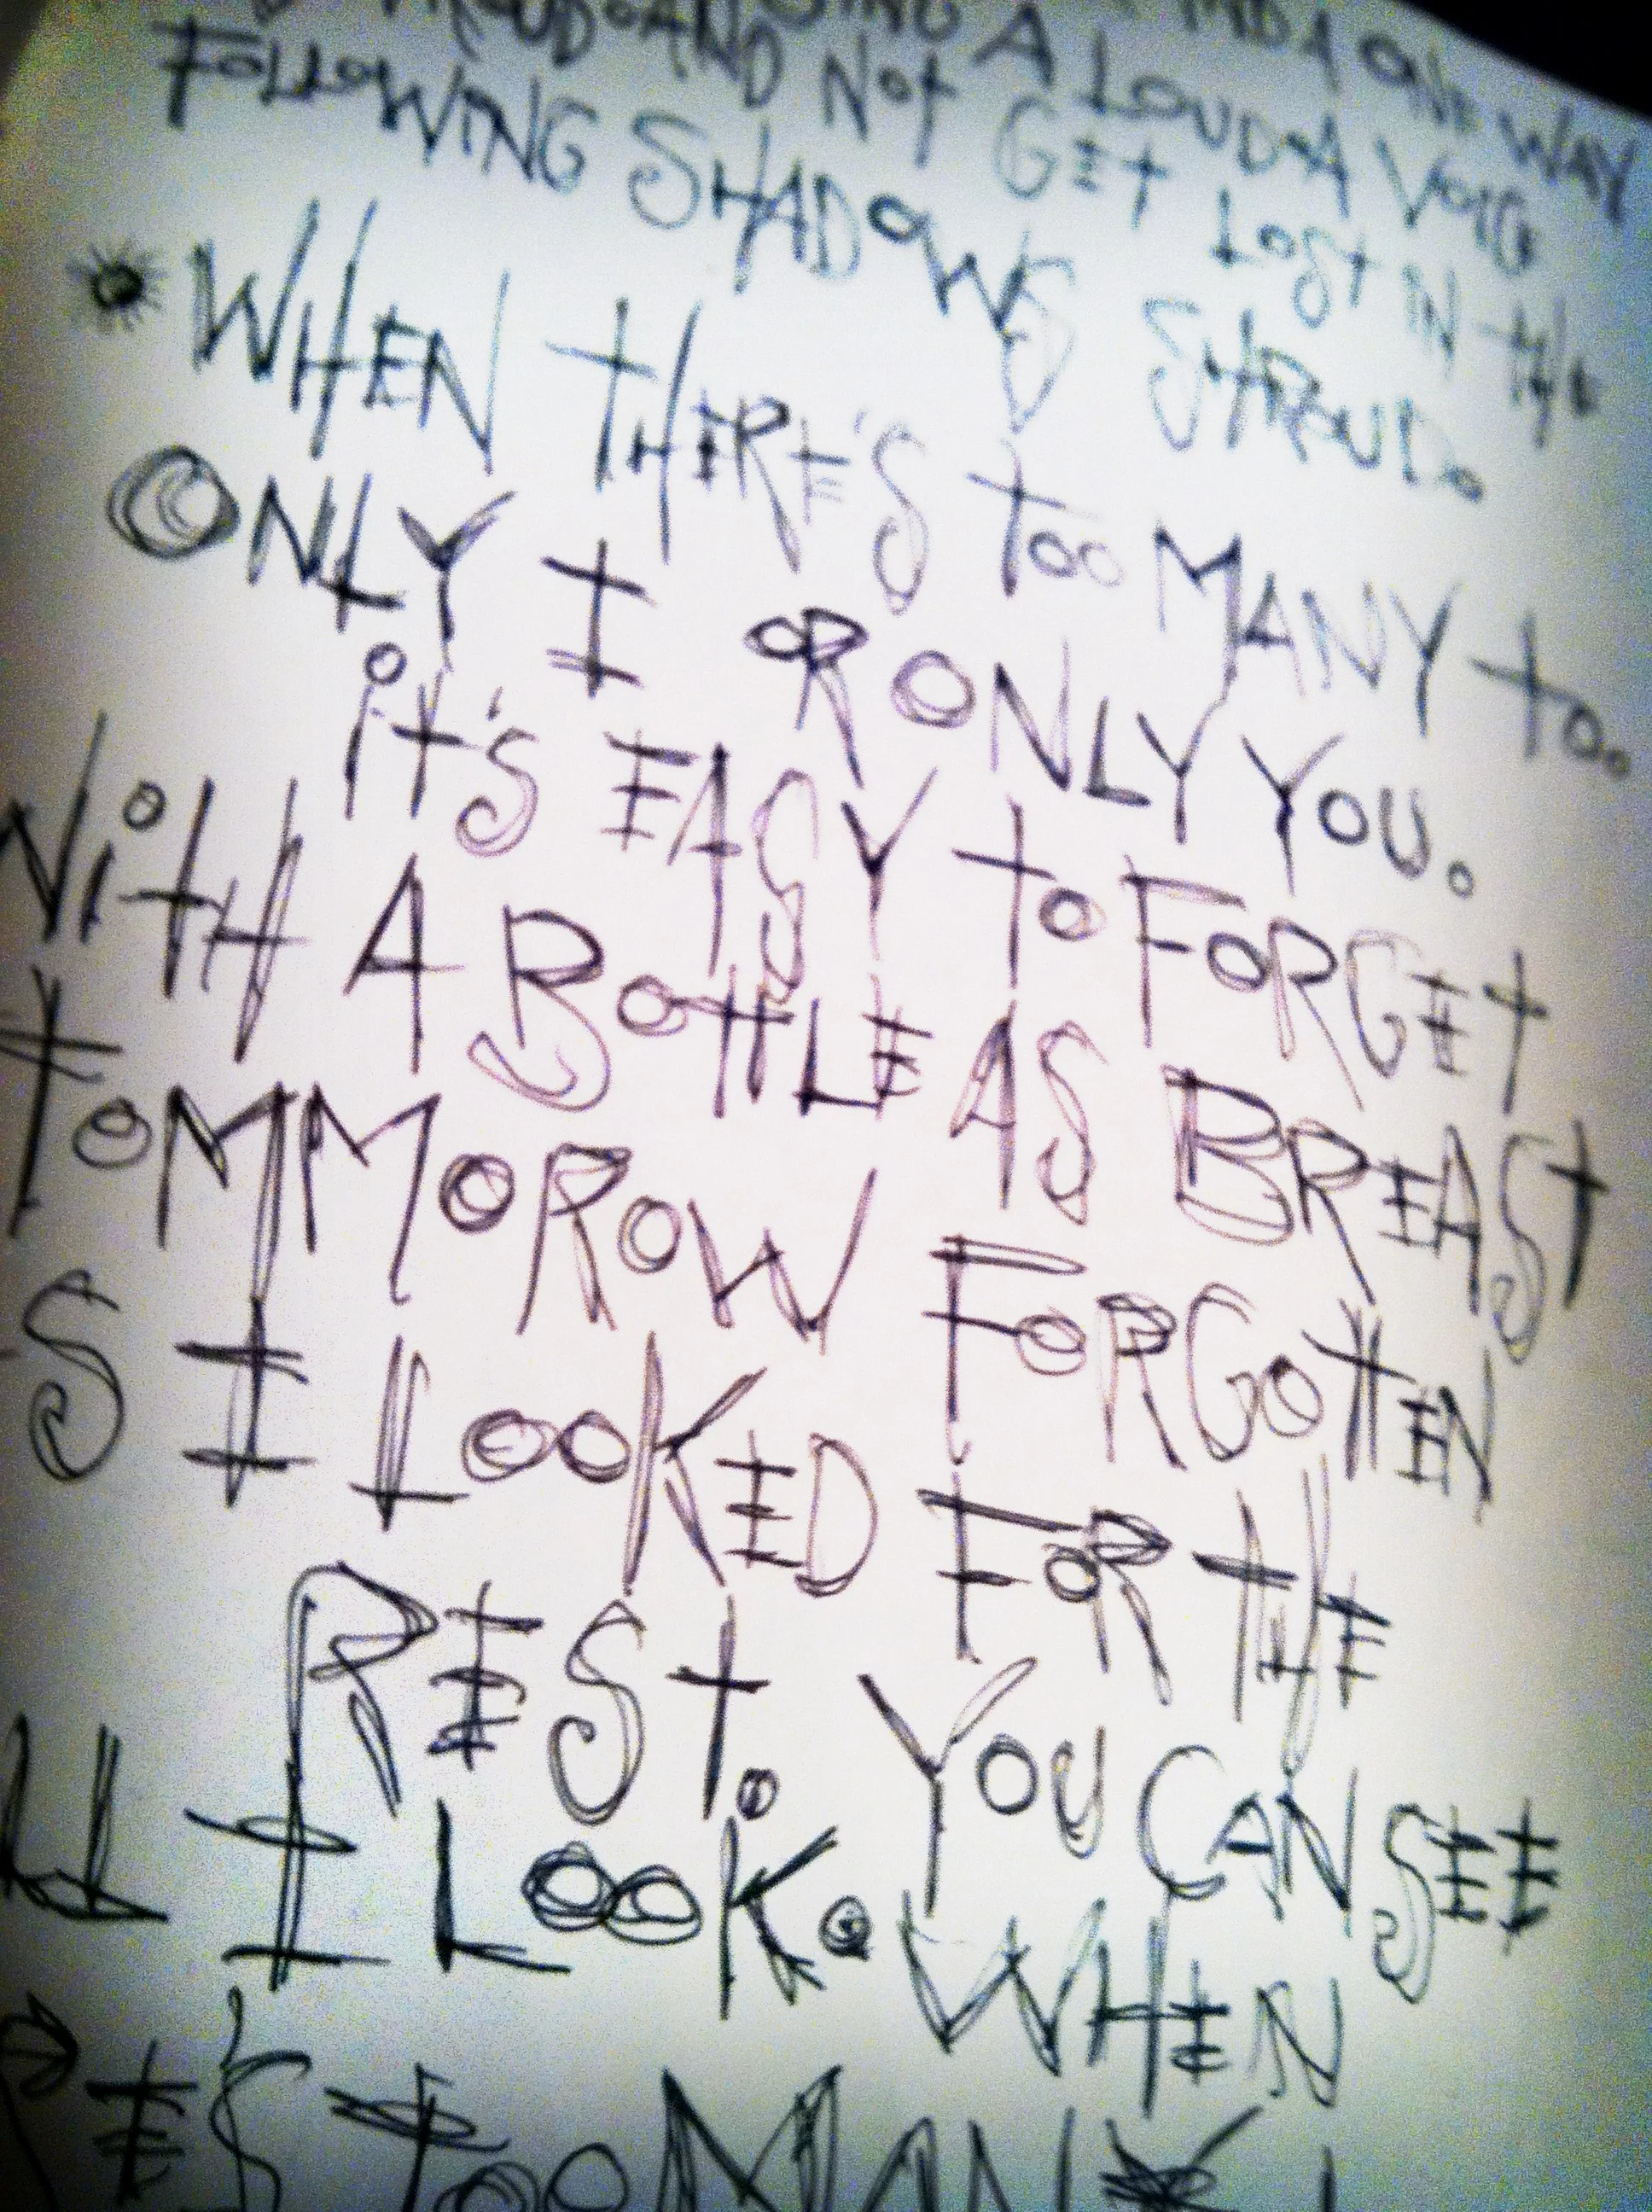 A ONE WAY
AND SING A LOUD A VOIC
FOLLOWING AND NOT GET LOST IN THE
SHADOWS SHROUD.
WHEN THERE'S TOO MANY TO.
ONLY I OR ONLY YOU.
IT'S EASY TO FORGET
WITH A BOTTLE AS BREAST
TOMMOROW FORGOTTEN
S I LOOKED FOR THE
REST. YOU CAN SEE
LL I LOOK. WHEN
RE'S TOO MANY